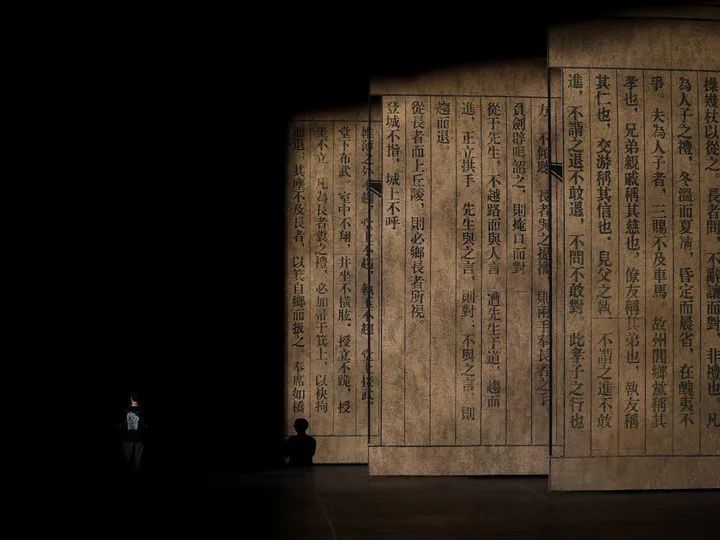 操幾杖以從之。長者問,不辭讓而對,非禮也。凡
為人子之禮,冬溫而夏凊,昏定而晨省,在醜夷不
爭。夫為人子者,三賜不及車馬 故州閭鄉黨稱其
孝也,兄弟親戚稱其慈也,僚友稱其弟也,執友稱
其仁也,交游稱其信也。見父之執 不謂之進不敢
進,不謂之退不敢退,不問不敢對 此孝子之行也
方,不傾聽 長者與之提攜 則兩手奉長者之手
負劍辟咡詔之,則掩口而對
從于先生,不越路而與人言 遭先生于道,趨而
進,正立拱手 先生與之言,則對;不與之言,則
趨而退
從長者而上丘陵,則必鄉長者所視。
登城不指,城上不呼。
帷薄之外不趨,堂上不趨,執玉不趨 堂上接武,
堂下布武 室中不翔,并坐不橫肱,授立不跪,授
坐不立 凡為長者糞之禮,必加帚于箕上,以袂拘
而退,其塵不及長者,以箕自鄉而扱之 奉席如橋